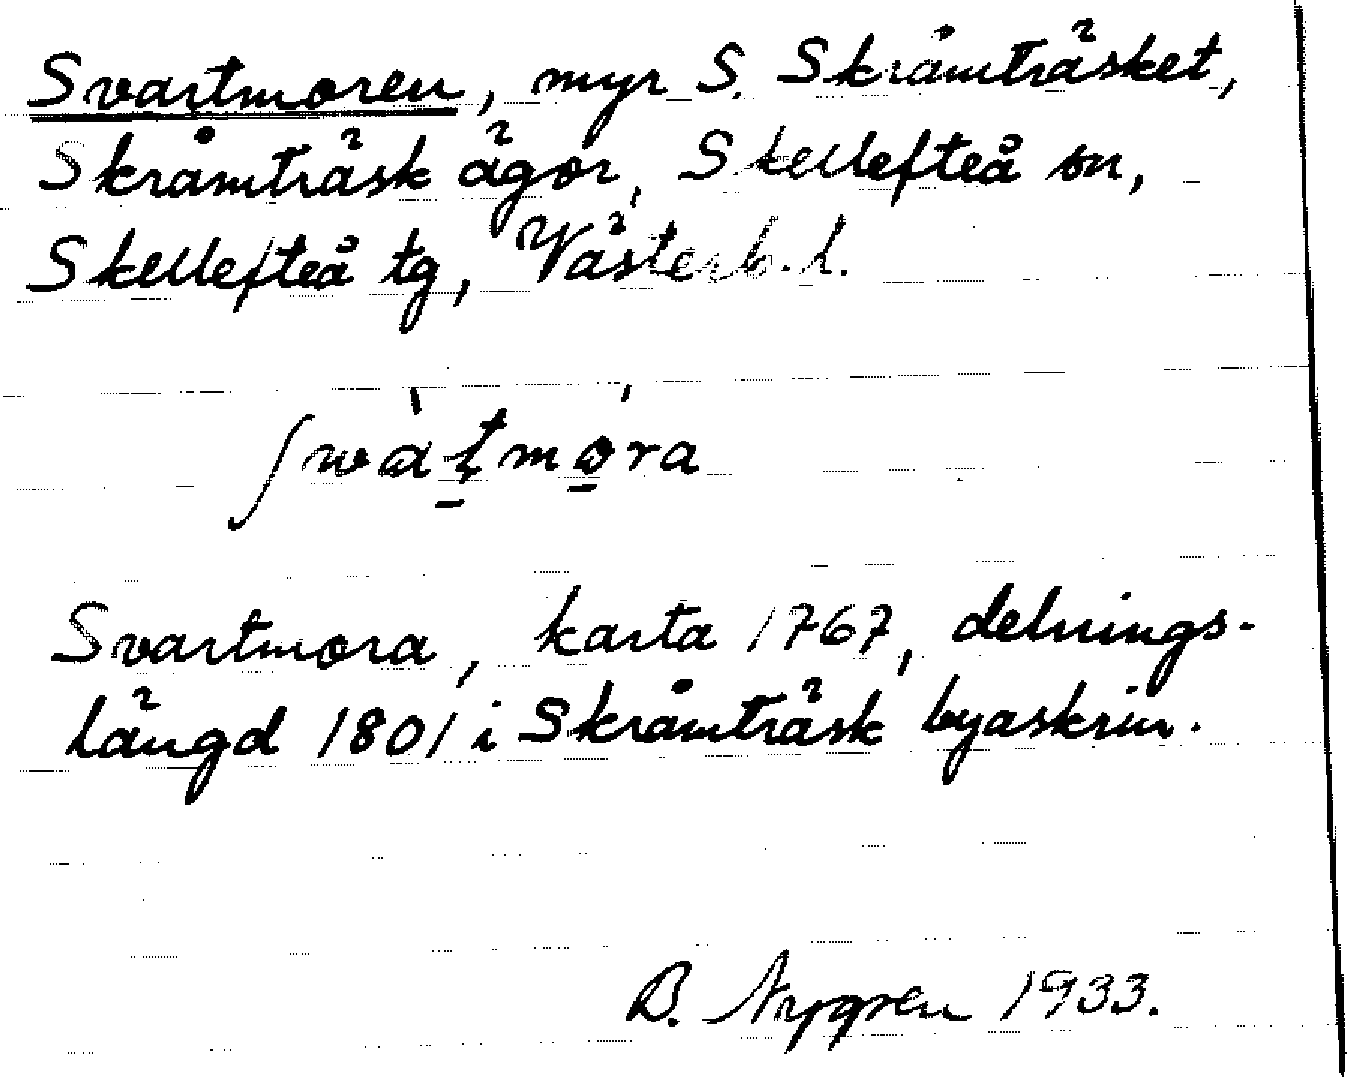 Svartmoren, myr S. Skråmträsket,
Skråmträsk ägor, Skellefteå sn,
Skellefteå tg, Västerb. l.
ʃwàṯmo̱ra
Svartmora, karta 1767, delnings-
längd 1801 i Skråmträsk byaskrin.
B. Nygren 1933.